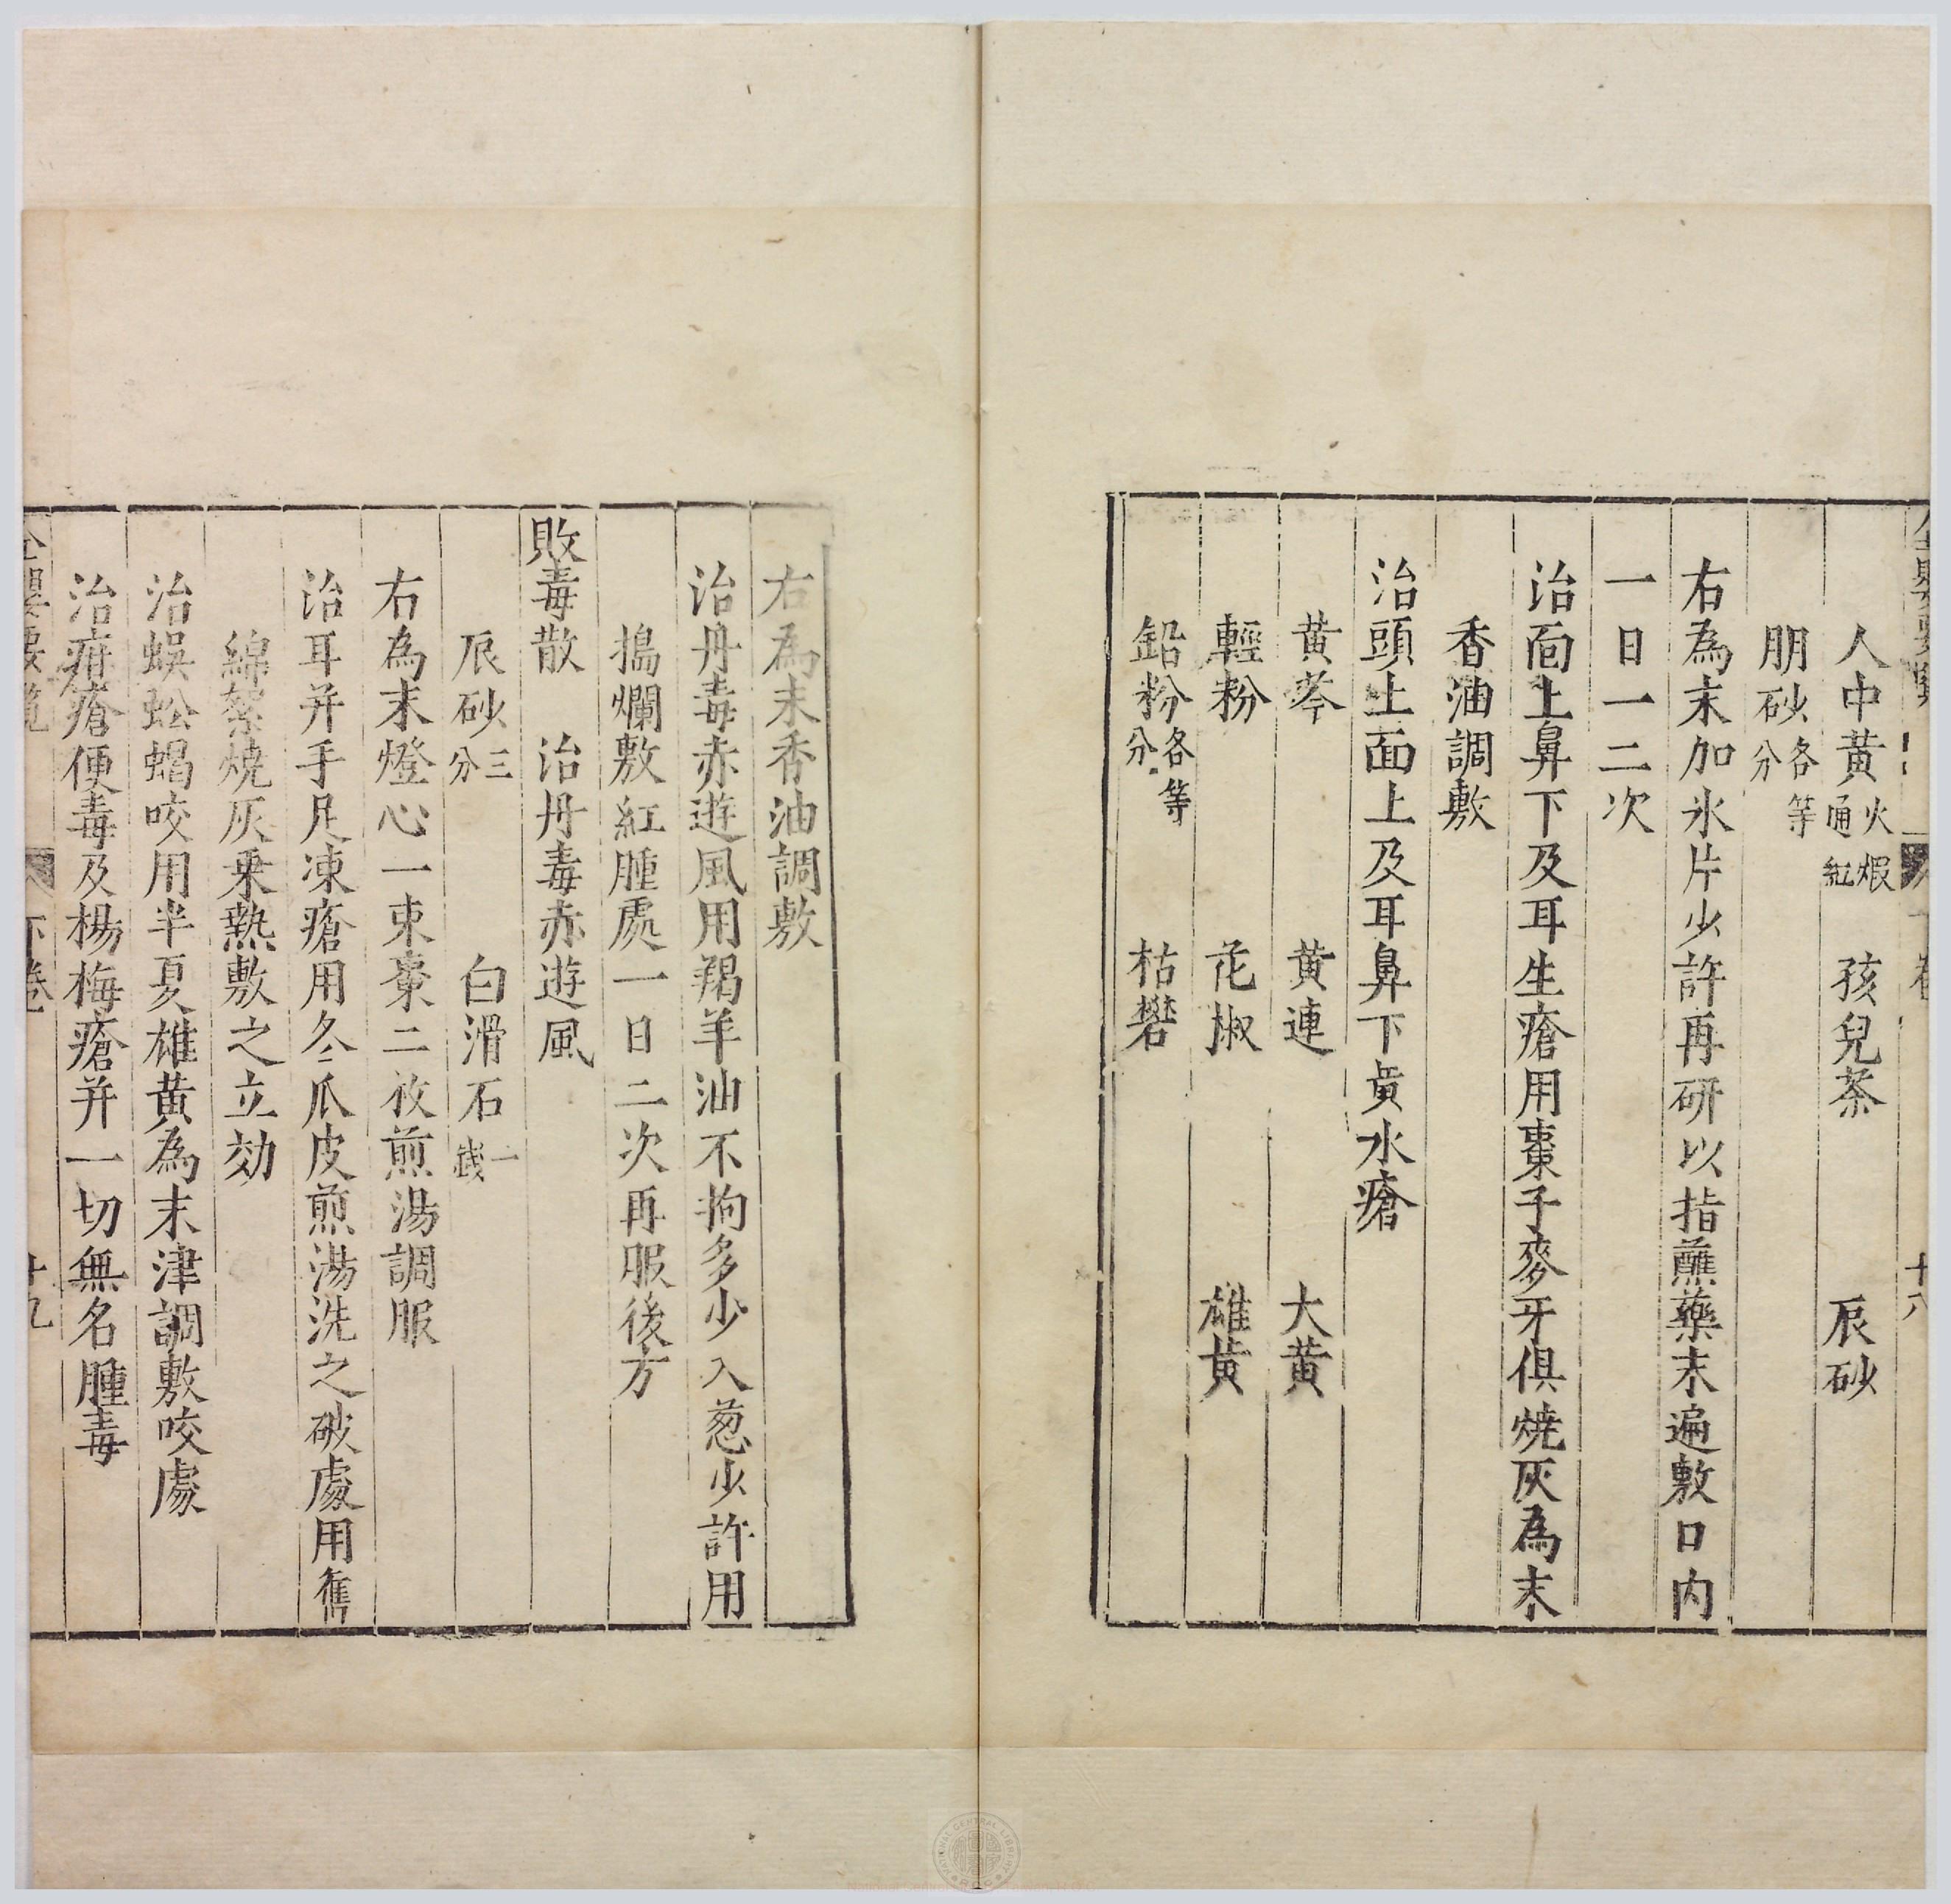 十八
人中黄火煆通紅　孩兒茶　辰砂
朋砂各等分
右為末加氷片少許再研以指蘸藥末遍敷口内
一日一二次
治面上鼻下及耳生瘡用棗子麥牙俱燒灰為末
香油調敷
治頭上面上及耳鼻下黄水瘡
黄芩　黄連　大黄
輕粉　花椒　雄黄
鉛粉各等分　枯礬
右為末香油調敷
治丹毒赤遊風用羯羊油不拘多少入葱少許用
搗爛敷紅腫處一日二次再服後方
敗毒散　治丹毒赤遊風
辰砂三分　白滑石一錢
右為末燈心一束棗二枚煎湯調服
治耳并手足凍瘡用冬瓜皮煎湯洗之破處用舊
綿絮燒灰乗熱敷之立効
治蜈蚣蝎咬用半夏雄黄為末津調敷咬處
治疳瘡便毒及楊梅瘡并一切無名腫毒
下卷　十九